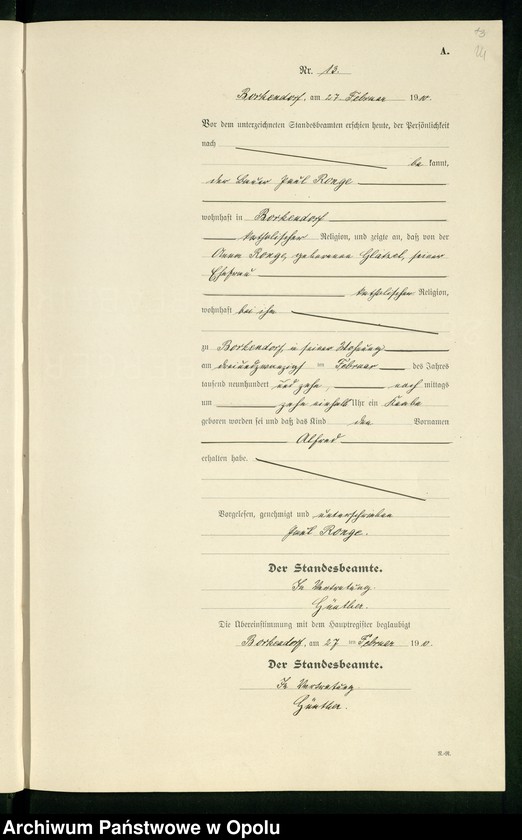 A.
Nr. 13.
Borkendorf, am 27. Februar 1910.
Vor dem unterzeichneten Standesbeamten erschien heute, der Persönlichkeit
nach
be kannt,
der Bauer Paul Ronge
wohnhaft in Borkendorf
katholischer Religion, und zeigte an, daß von der
Anna Ronge, geborenen Glatzel, seiner
Ehefrau
katholischer Religion,
wohnhaft bei ihm
zu Borkendorf, in seiner Wohnung
am dreiundzwanzigsten Februar des Jahres
tausend neunhundert und zehn, nach mittags
um zehn einhalb Uhr ein Knabe
geboren worden sei und daß das Kind den Vornamen
Alfred
erhalten habe.
Vorgelesen, genehmigt und unterschrieben
Paul Ronge.
Der Standesbeamte.
In Vertretung
Günther.
Die Übereinstimmung mit dem Hauptregister beglaubigt
Borkendorf, am 27 ten Februar 1910.
Der Standesbeamte.
In Vertretung
Günther.
Archiwum Państwowe w Opolu